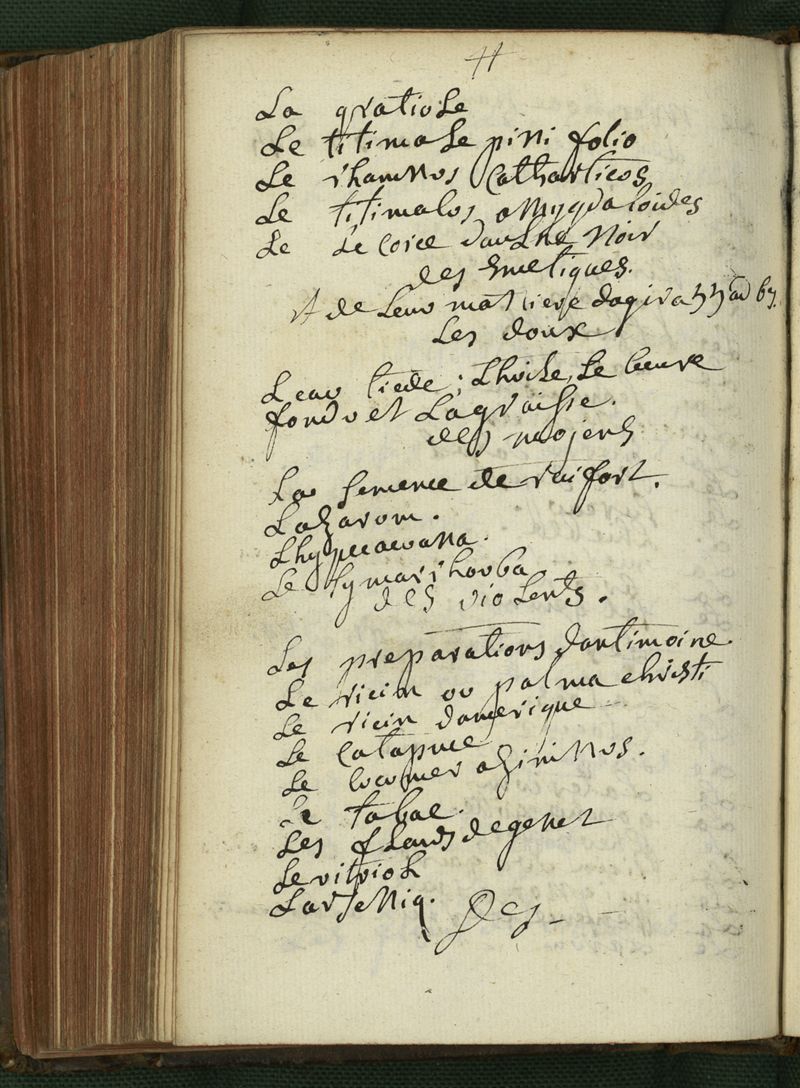 44
La gratiole
Le titimale pini folio
Le rhamnos Catharticos
Le titimalos amygdaloides
Le Le Corce daulne Noir
des Emetiques.
et de Leur matiere dagir
Les doux
Leau tiede, Lhuile, Le beure
fondu et Lagraisse.
des mojens
La semence de raifort.
Lazarom.
Lhypecacuana.
Le symarrhouba
des violents.
Les preparations dantimoine
Le ricin ou palma christi
Le ricin damerique
Le Catapuce
Le Cocomer asininos.
Le tabac.
Les fleurs de genet
Le vitriol
Larseniq.
Des